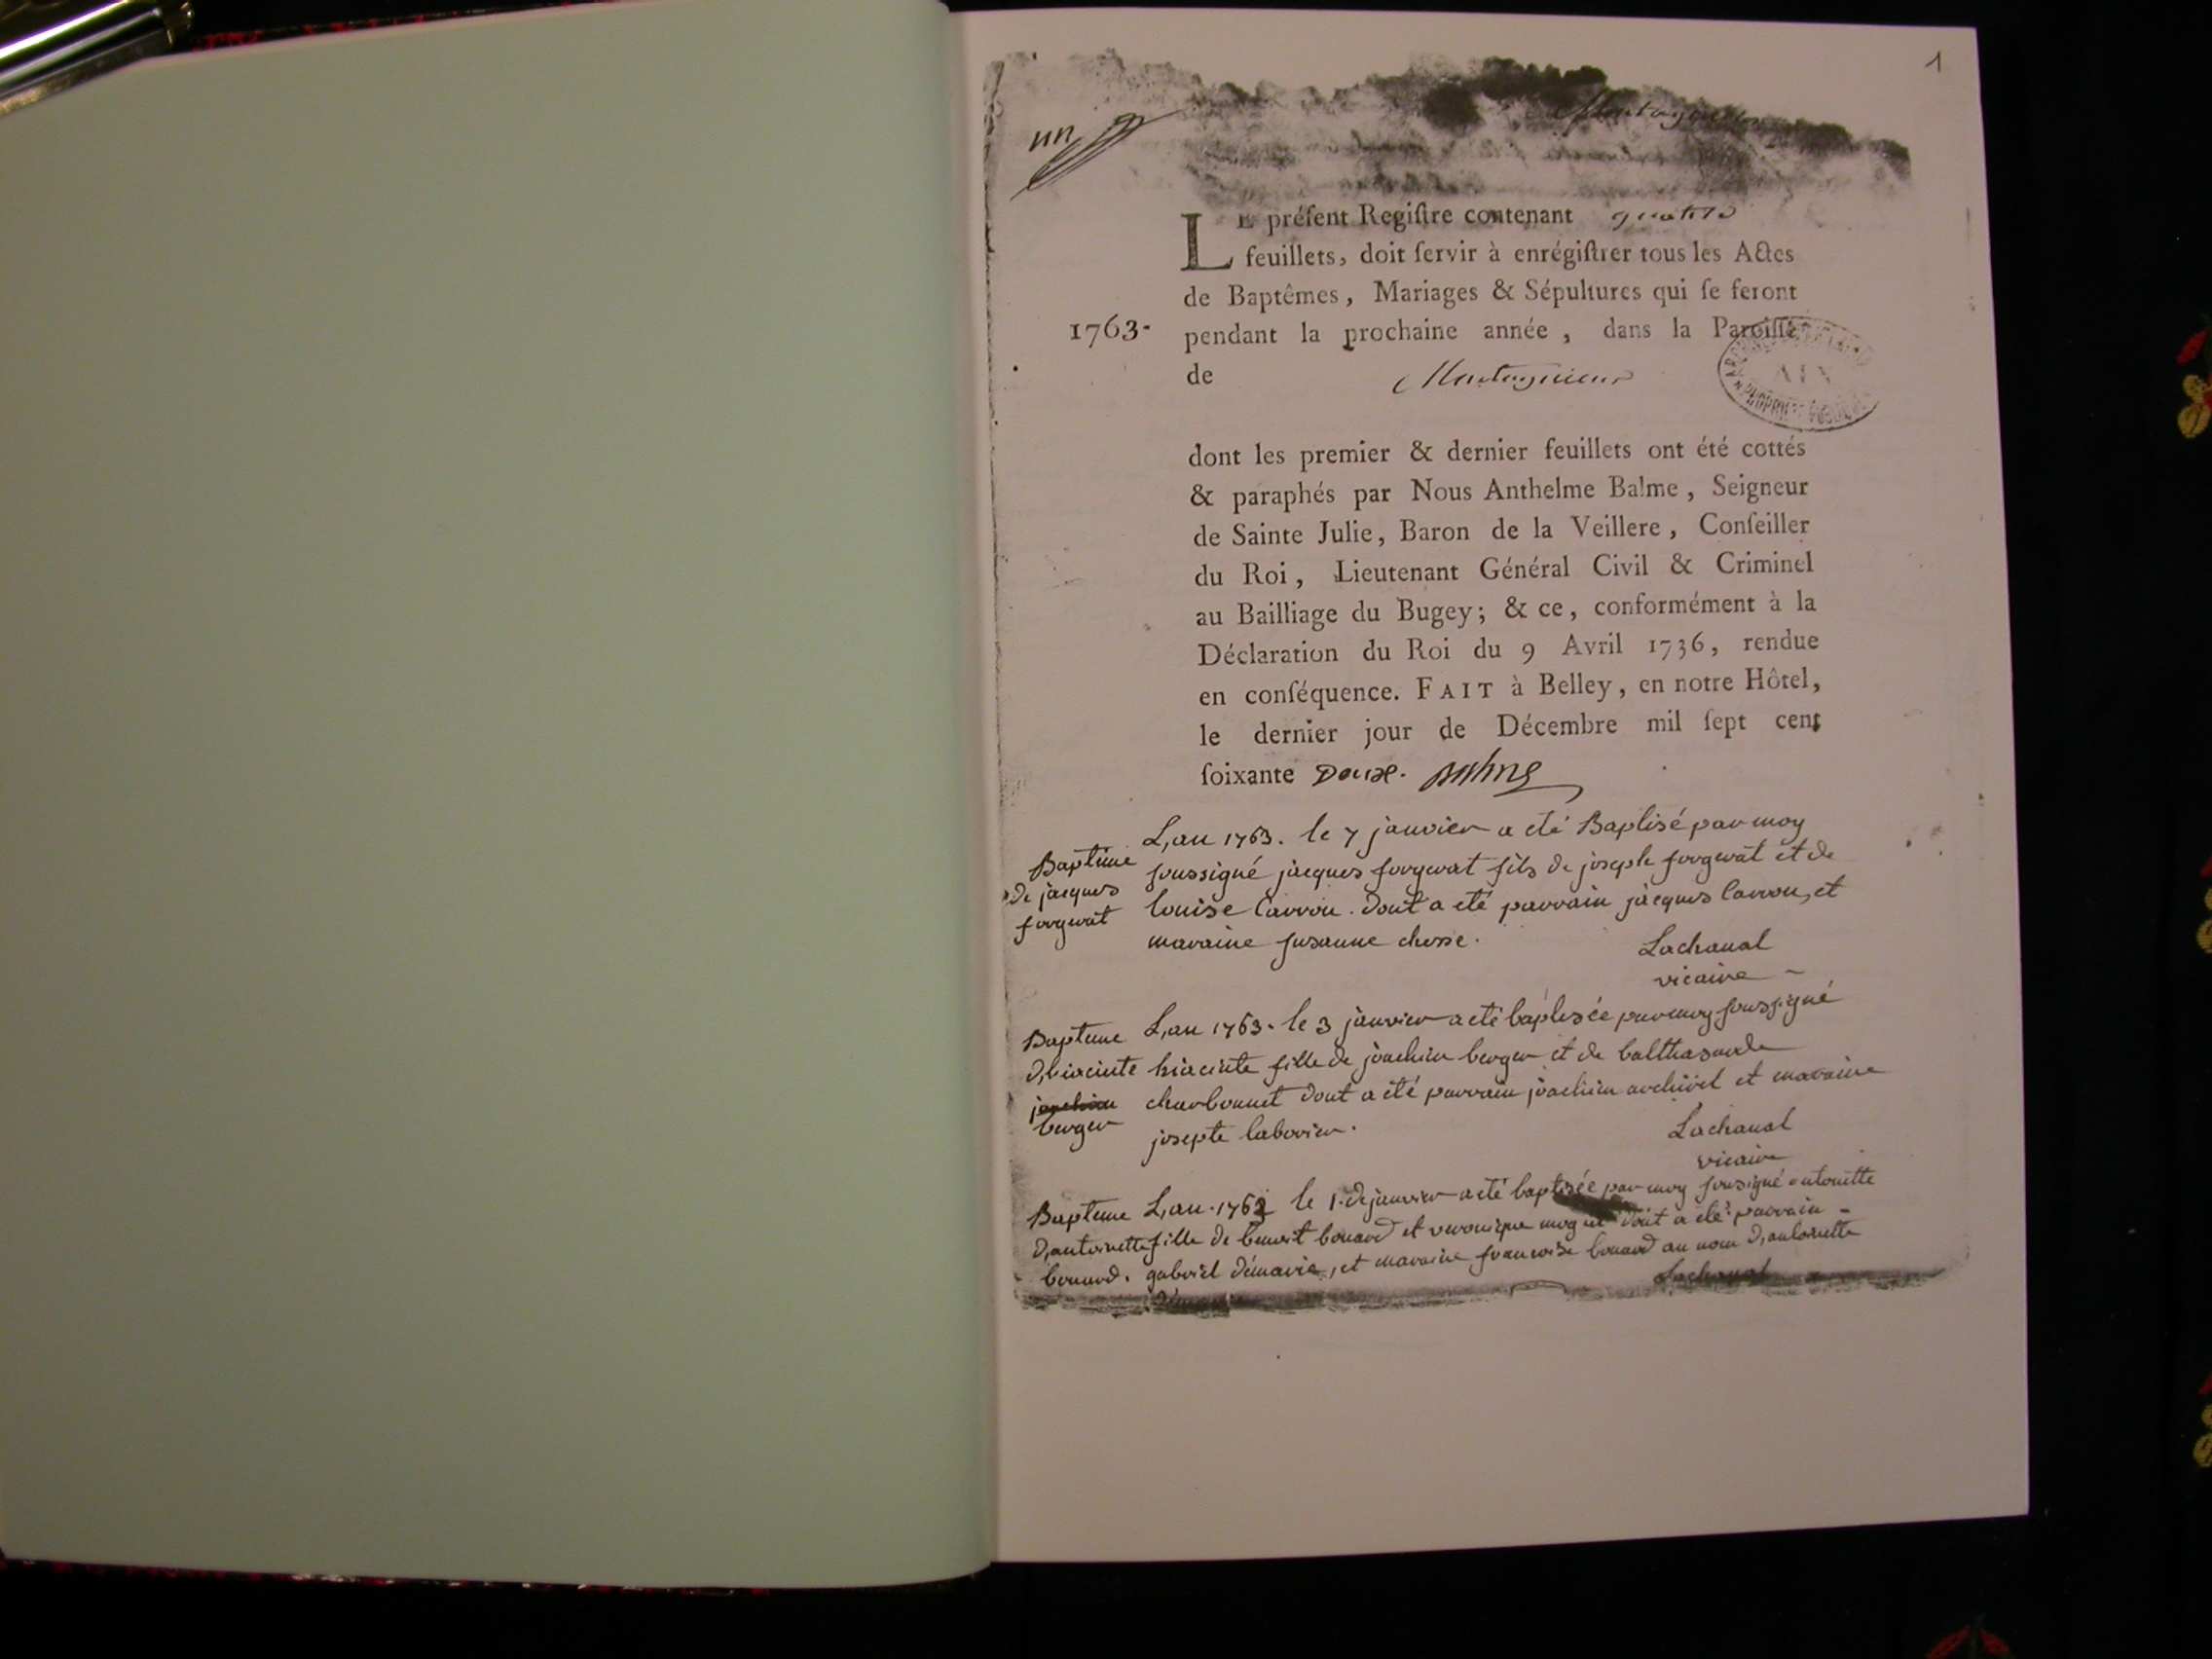 1
un
Montagnieu
LE préſent Regiſtre contenant quatre
feuillets, doit ſervir à enrégiſtrer tous les Actes
de Baptêmes, Mariages & Sépultures qui ſe feront
1763. pendant la prochaine année, dans la Paroiſſe
de Montagnieu
dont les premier & dernier feuillets ont été cottés
& paraphés par Nous Anthelme Balme, Seigneur
de Sainte Julie, Baron de la Veillere, Conſeiller
du Roi, Lieutenant Général Civil & Criminel
au Bailliage du Bugey; & ce, conformément à la
Déclaration du Roi du 9 Avril 1736, rendue
en conſéquence. FAIT à Belley, en notre Hôtel,
le dernier jour de Décembre mil ſept cent
ſoixante Douze. Balme
Bapteme de jacques forgerat
L,an 1763. le 7 janvier a eté Baptisé par moy
soussigné jacques forgerat fils de joseph forgerat et de
louise Carron. dont a eté parrain jacques Carron, et
maraine susanne chesse.
Lachanal
vicaire
Bapteme d,hiacinte joachim berger
L,an 1763. le 3 janvier a eté baptisée par moy soussigné
hiacinte fille de joachim berger et de balthasarde
charbonnet dont a été parrain joachim et maraine
josepte laborier.
Lachanal
vicaire
Bapteme d,antoinette bonard.
L,an. 1763 le 1. de janvier a eté baptisée par moy sousigné antoinette
fille de benoit bonard et veronique dont a eté parrain
gabriel démarie, et maraine francoise bonard au nom d,antoinette
Lachanal